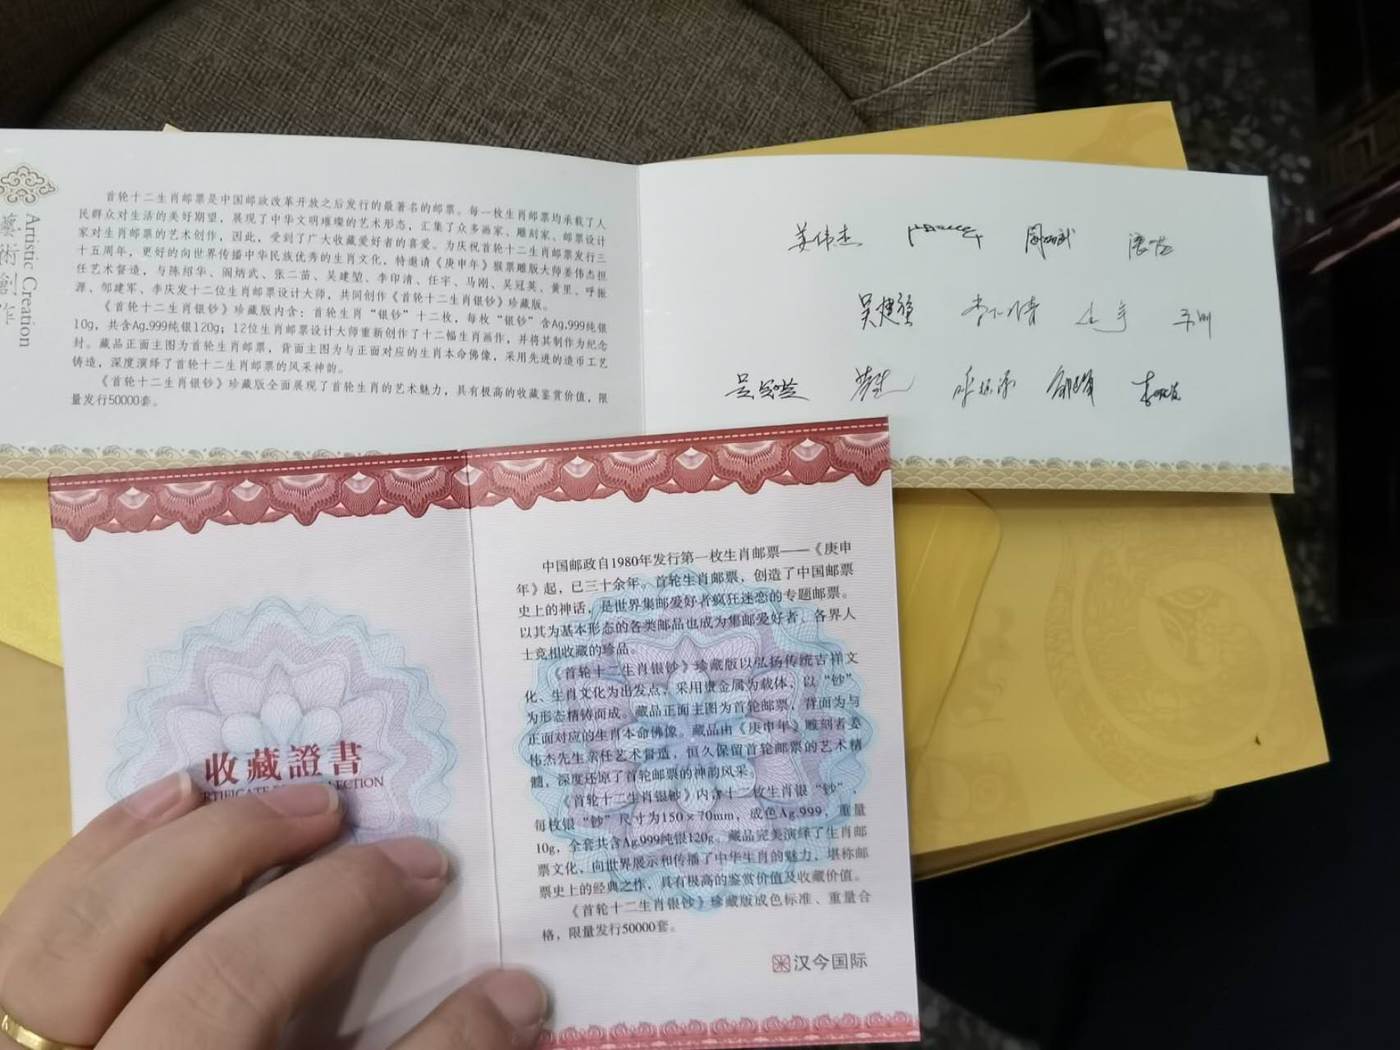 藝術創作
Artistic Creation
首轮十二生肖邮票是中国邮政改革开放之后发行的最著名的邮票。每一枚生肖邮票均承载了人
民群众对生活的美好期望，展现了中华文明璀璨的艺术形态，汇集了众多画家、雕刻家、邮票设计
家对生肖邮票的艺术创作，因此，受到了广大收藏爱好者的喜爱。为庆祝首轮十二生肖邮票发行三
十五周年，更好的向世界传播中华民族优秀的生肖文化，特邀请《庚申年》猴票雕版大师姜伟杰担
任艺术督造，与陈绍华、阎炳武、张二苗、吴建堃、李印清、任宇、马刚、吴冠英、黄里、呼振
源、邹建军、李庆发十二位生肖邮票设计大师，共同创作《首轮十二生肖银钞》珍藏版。
《首轮十二生肖银钞》珍藏版内含：首轮生肖“银钞”十二枚，每枚“银钞”含Ag.999纯银
10g，共含Ag.999纯银120g；12位生肖邮票设计大师重新创作了十二幅生肖画作，并将其制作为纪念
封。藏品正面主图为首轮生肖邮票，背面主图为与正面对应的生肖本命佛像，采用先进的造币工艺
铸造，深度演绎了首轮十二生肖邮票的风采神韵。
《首轮十二生肖银钞》珍藏版全面展现了首轮生肖的艺术魅力，具有极高的收藏鉴赏价值，限
量发行50000套。
姜伟杰 阎炳武
吴建堃 李印清 任宇 马刚
吴冠英 黄里 呼振源 邹建军 李庆发
收藏證書
中国邮政自1980年发行第一枚生肖邮票——《庚申
年》起，已三十余年。首轮生肖邮票，创造了中国邮票
史上的神话，是世界集邮爱好者疯狂迷恋的专题邮票。
以其为基本形态的各类邮品也成为集邮爱好者、各界人
士竞相收藏的珍品。
《首轮十二生肖银钞》珍藏版以弘扬传统吉祥文
化、生肖文化为出发点，采用贵金属为载体，以“钞”
为形态精铸而成。藏品正面主图为首轮邮票，背面为与
正面对应的生肖本命佛像。藏品由《庚申年》雕刻者姜
伟杰先生亲任艺术督造，恒久保留首轮邮票的艺术精
髓，深度还原了首轮邮票的神韵风采。
《首轮十二生肖银钞》内含十二枚生肖银“钞”，
每枚银“钞”尺寸为150×70mm，成色Ag.999，重量
10g，全套共含Ag.999纯银120g。藏品完美演绎了生肖邮
票文化，向世界展示和传播了中华生肖的魅力，堪称邮
票史上的经典之作，具有极高的鉴赏价值及收藏价值。
《首轮十二生肖银钞》珍藏版成色标准、重量合
格，限量发行50000套。
汉今国际